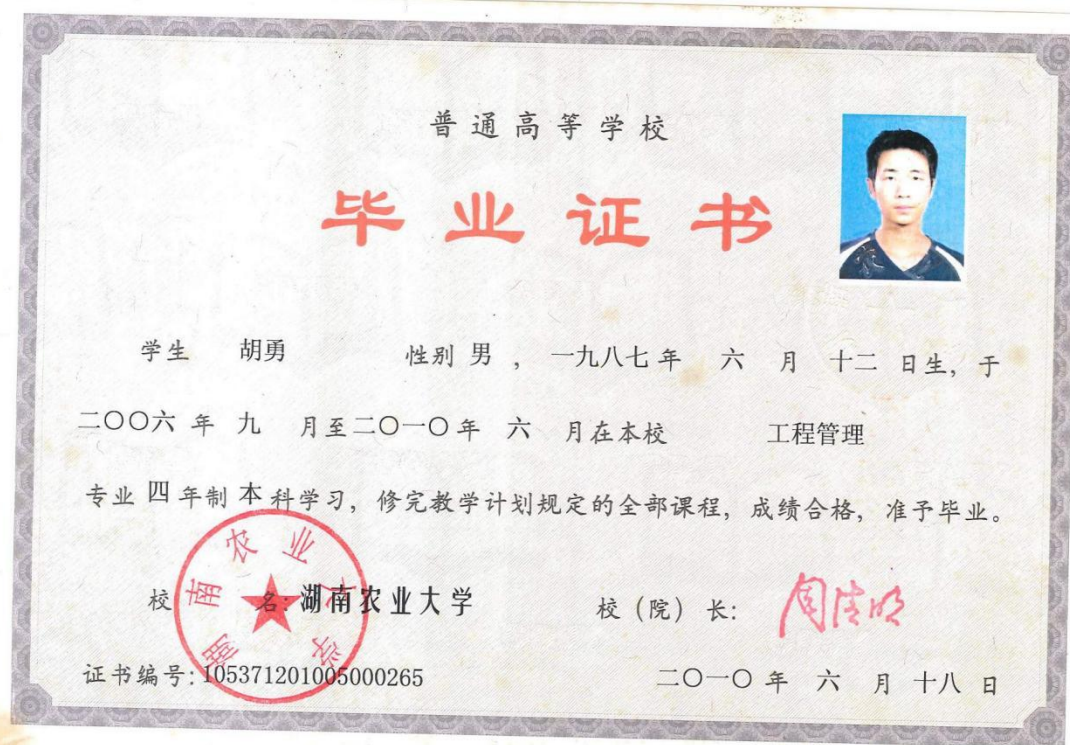 普通高等学校
毕业证书
学生 胡勇 性别 男 ， 一九八七 年 六 月 十二 日生，于
二〇〇六 年 九 月至二〇一〇 年 六 月在本校 工程管理
专业 四 年制 本 科学习，修完教学计划规定的全部课程，成绩合格，准予毕业。
湖南农业大学
校 名: 湖南农业大学 校（院）长: 周清明
证书编号: 105371201005000265 二〇一〇 年 六 月 十八 日